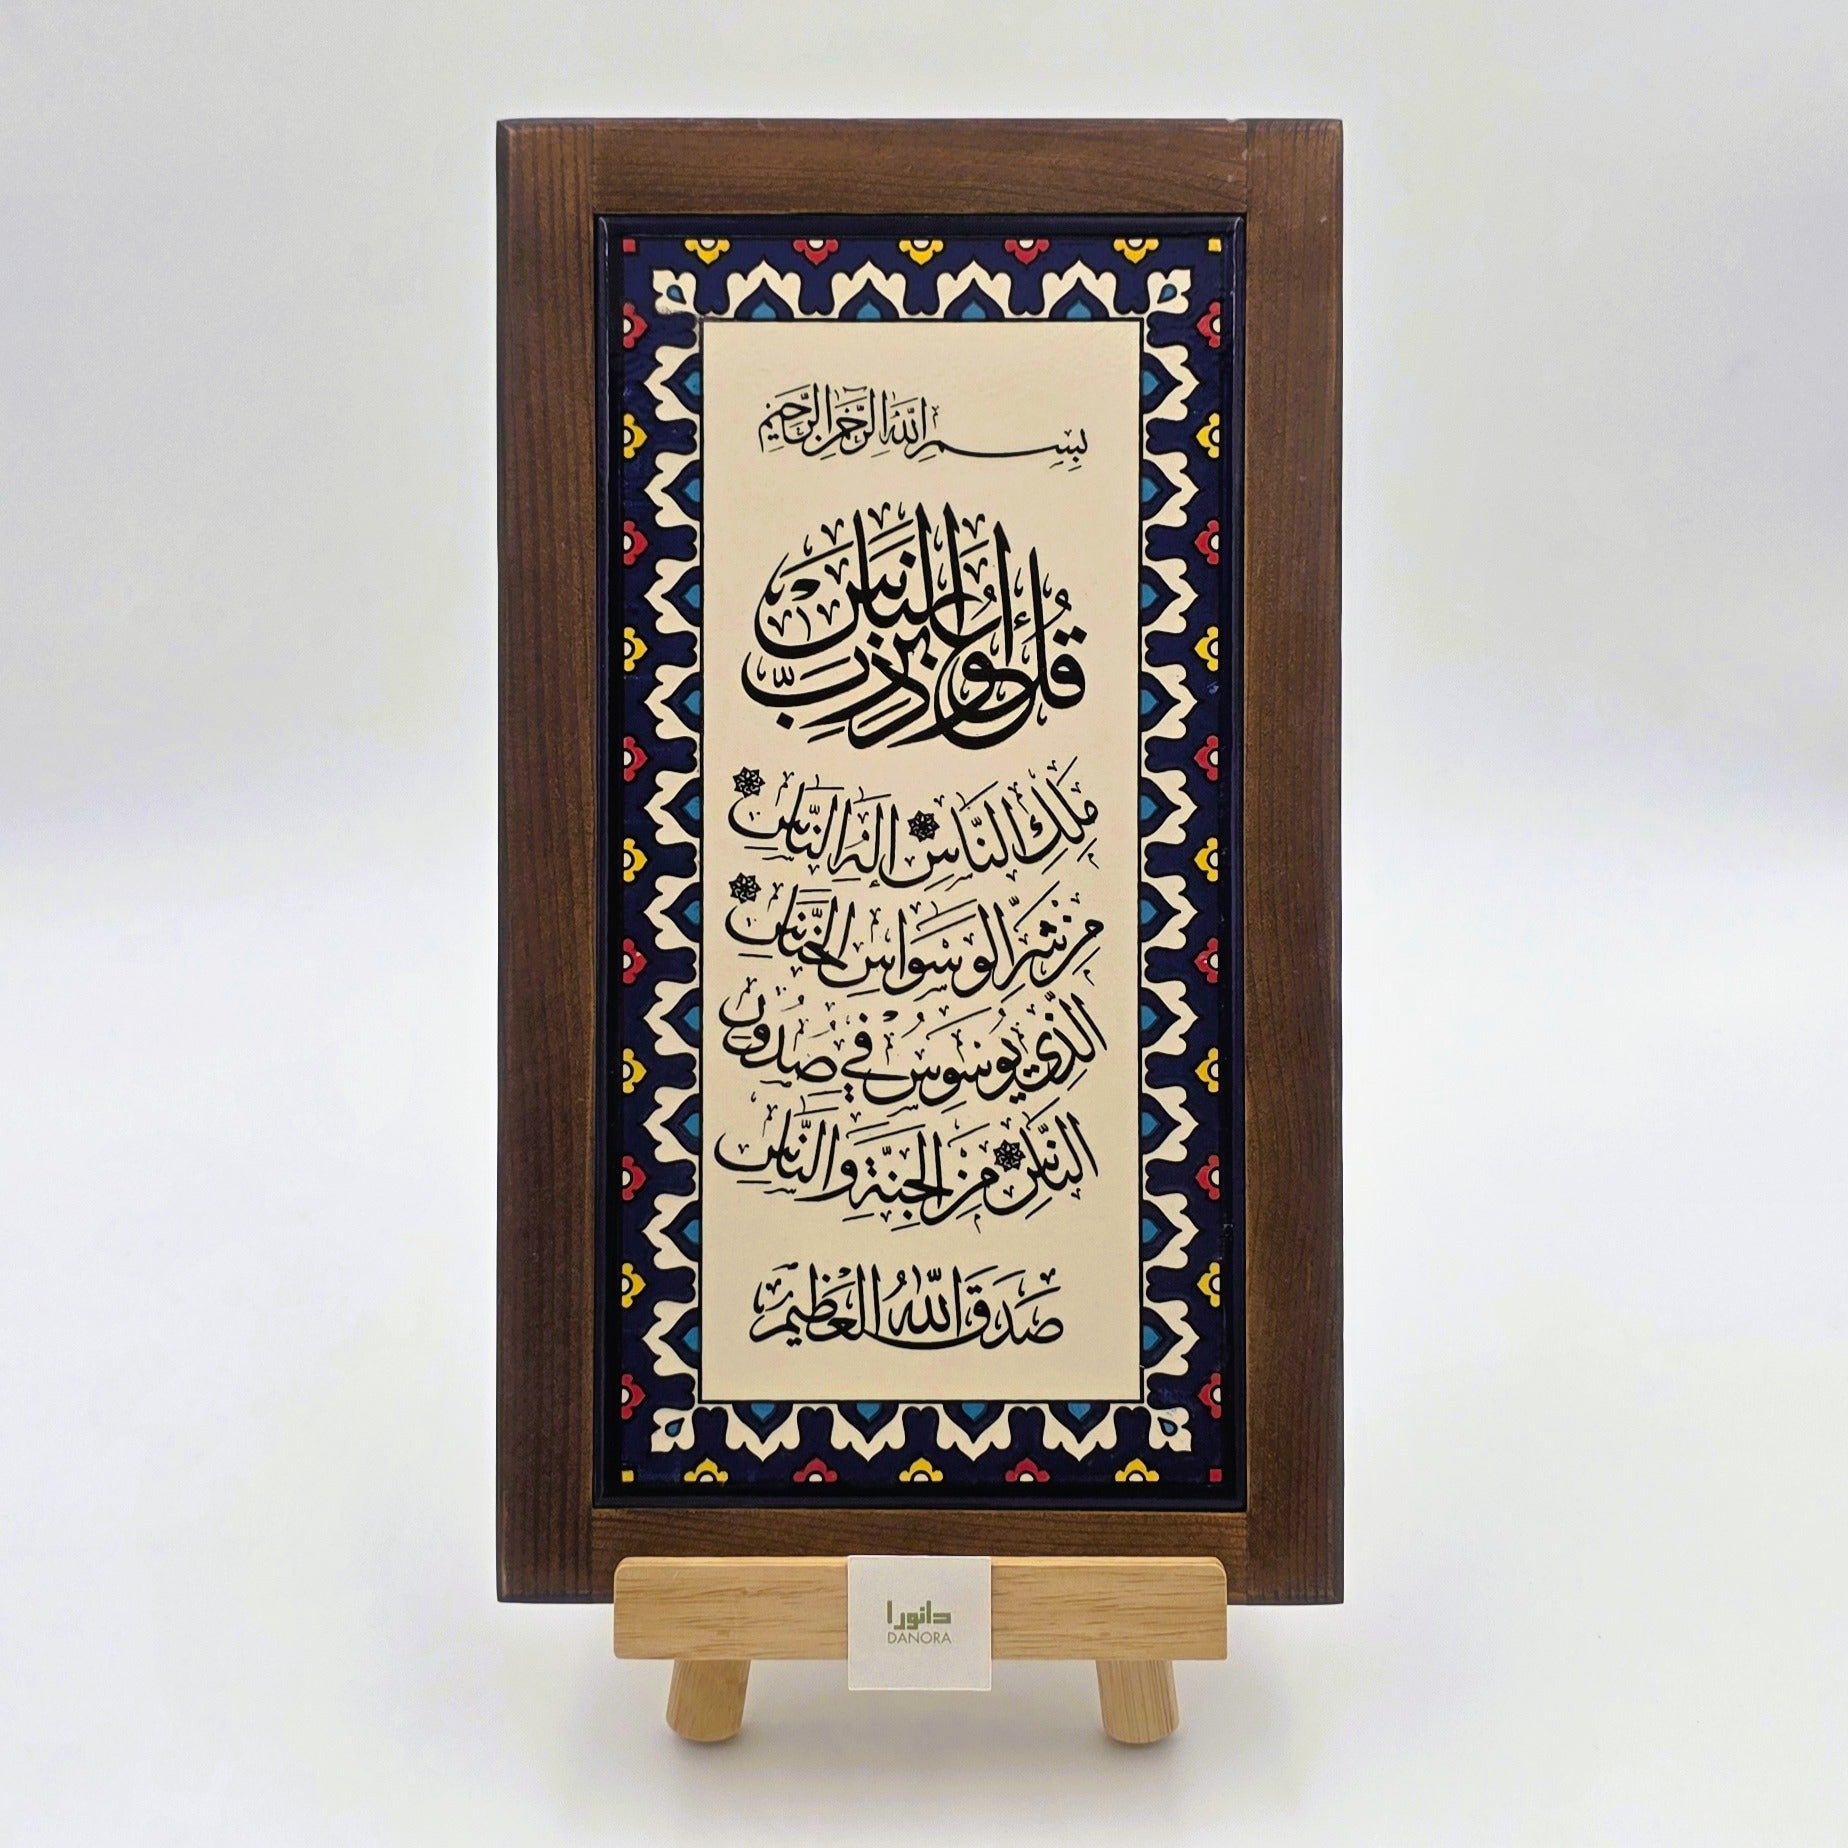 بِسْمِ اللَّهِ الرَّحْمَنِ الرَّحِيمِ
قُلْ أَعُوذُ بِرَبِّ النَّاسِ
مَلِكِ النَّاسِ إِلَٰهِ النَّاسِ
مِن شَرِّ الْوَسْوَاسِ الْخَنَّاسِ
الَّذِي يُوَسْوِسُ فِي صُدُورِ
النَّاسِ مِنَ الْجِنَّةِ وَالنَّاسِ
صَدَقَ اللَّهُ الْعَظِيمُ
دانورا
DANORA